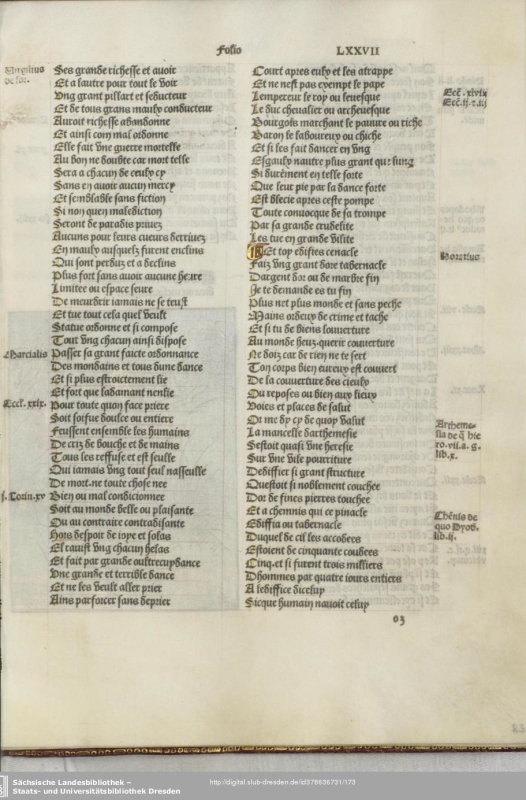 Folio LXXVII
Virgilius
Ses grande richesse et avoir
Et a lautre pour tout se voir
Ung grant pillart et seducteur
Et de tous grans maulx conducteur
Auroit richesse abandonne
Et ainsi com mal ordonne
Elle fait une guerre mortelle
Au bon ne doubte car mort telle
Sera a chacun de ceulx cy
Sans en avoir aucun mercy
Et semblable sans fiction
Si non quen malediction
Seront de paradis privez
Aucuns pour leurs cueurs derivez
En maulx ausquelz furent enclins
Qui sont perduz et a declins
Plus fort sans avoir aucune heure
Limitee ou espace seure
De meurdrir iamais ne se teust
Et tue tout cela quel veult
Statue ordonne et si compose
Tout ung chacun ainsi dispose
Marcialis
Passer sa grant faicte ordonnance
Des mondains et tous dune dance
Et si plus estroictement lie
Et fort que ladamant nenlie
Eccl. xxix.
Pour toute quon face priere
Soit soifue doulce ou entiere
Feussent ensemble les humains
De criz de bouche et de mains
Tous les reffuse et est seulle
Qui iamais ung tout seul nasseulle
De mort ne toute chose nee
j. Corin. xv
Bien ou mal condicionnee
Soit au monde belle ou plaisante
Ou au contraire contradisante
Hors despoir de ioye et solas
El ravist ung chacun helas
Et fait par grande oultrecuydance
Une grande et terrible dance
Et ne les veult aller prier
Ains parforcer sans deprier
Court apres eulx et les atrappe
Et ne nest pas exempt le pape
Lempereur le roy ou levesque
Le duc chevalier ou archevesque
Bourgois marchant le pauure ou riche
Baron le laboureux ou chiche
Et si les fait dancer en ung
Esgaulx nautre plus grant que lung
Si durement en telle sorte
Que leur pie par la dance forte
Est blecie apres ceste pompe
Toute convocque de sa trompe
Par sa grande crudelite
Les tue en grande vilite
Et toy edifies cenacle
Horatius
Faiz ung grant dore tabernacle
Dargent dor ou de marbre fin
Je te demande es tu fin
Plus net plus monde et sans peche
Mains ordeux de crime et tache
Et si tu de biens louverture
Au monde heuz querir couverture
Ne doiz car de rien ne te sert
Ton corps bien eureux est couvert
De la couverture des cieulx
Ou reposes ou bien aux lieux
Voies et places de salut
Or me dy cy de quoy valut
La mancelle darthemesie
Sestoit quasi une heresie
Sur une vile pourriture
Dediffier si grant structure
Questoit si noblement couchee
Dor de fines pierres touchee
Et a chemnis qui ce pinacle
Ediffia ou tabernacle
Duquel de cil les accobees
Estoient de cinquante coubees
Cinq.et si furent trois milliers
Dhommes par quatre iours entiers
A lediffice dicelux
Sicque humain navoit celux
Arthemesia
de q̄ hiero. vii. a. g.
lib. x.
Chēnis de
quo Dyod.
lib. ij.
Sächsische Landesbibliothek –
Staats- und Universitätsbibliothek Dresden
http://digital.slub-dresden.de/id378636731/173